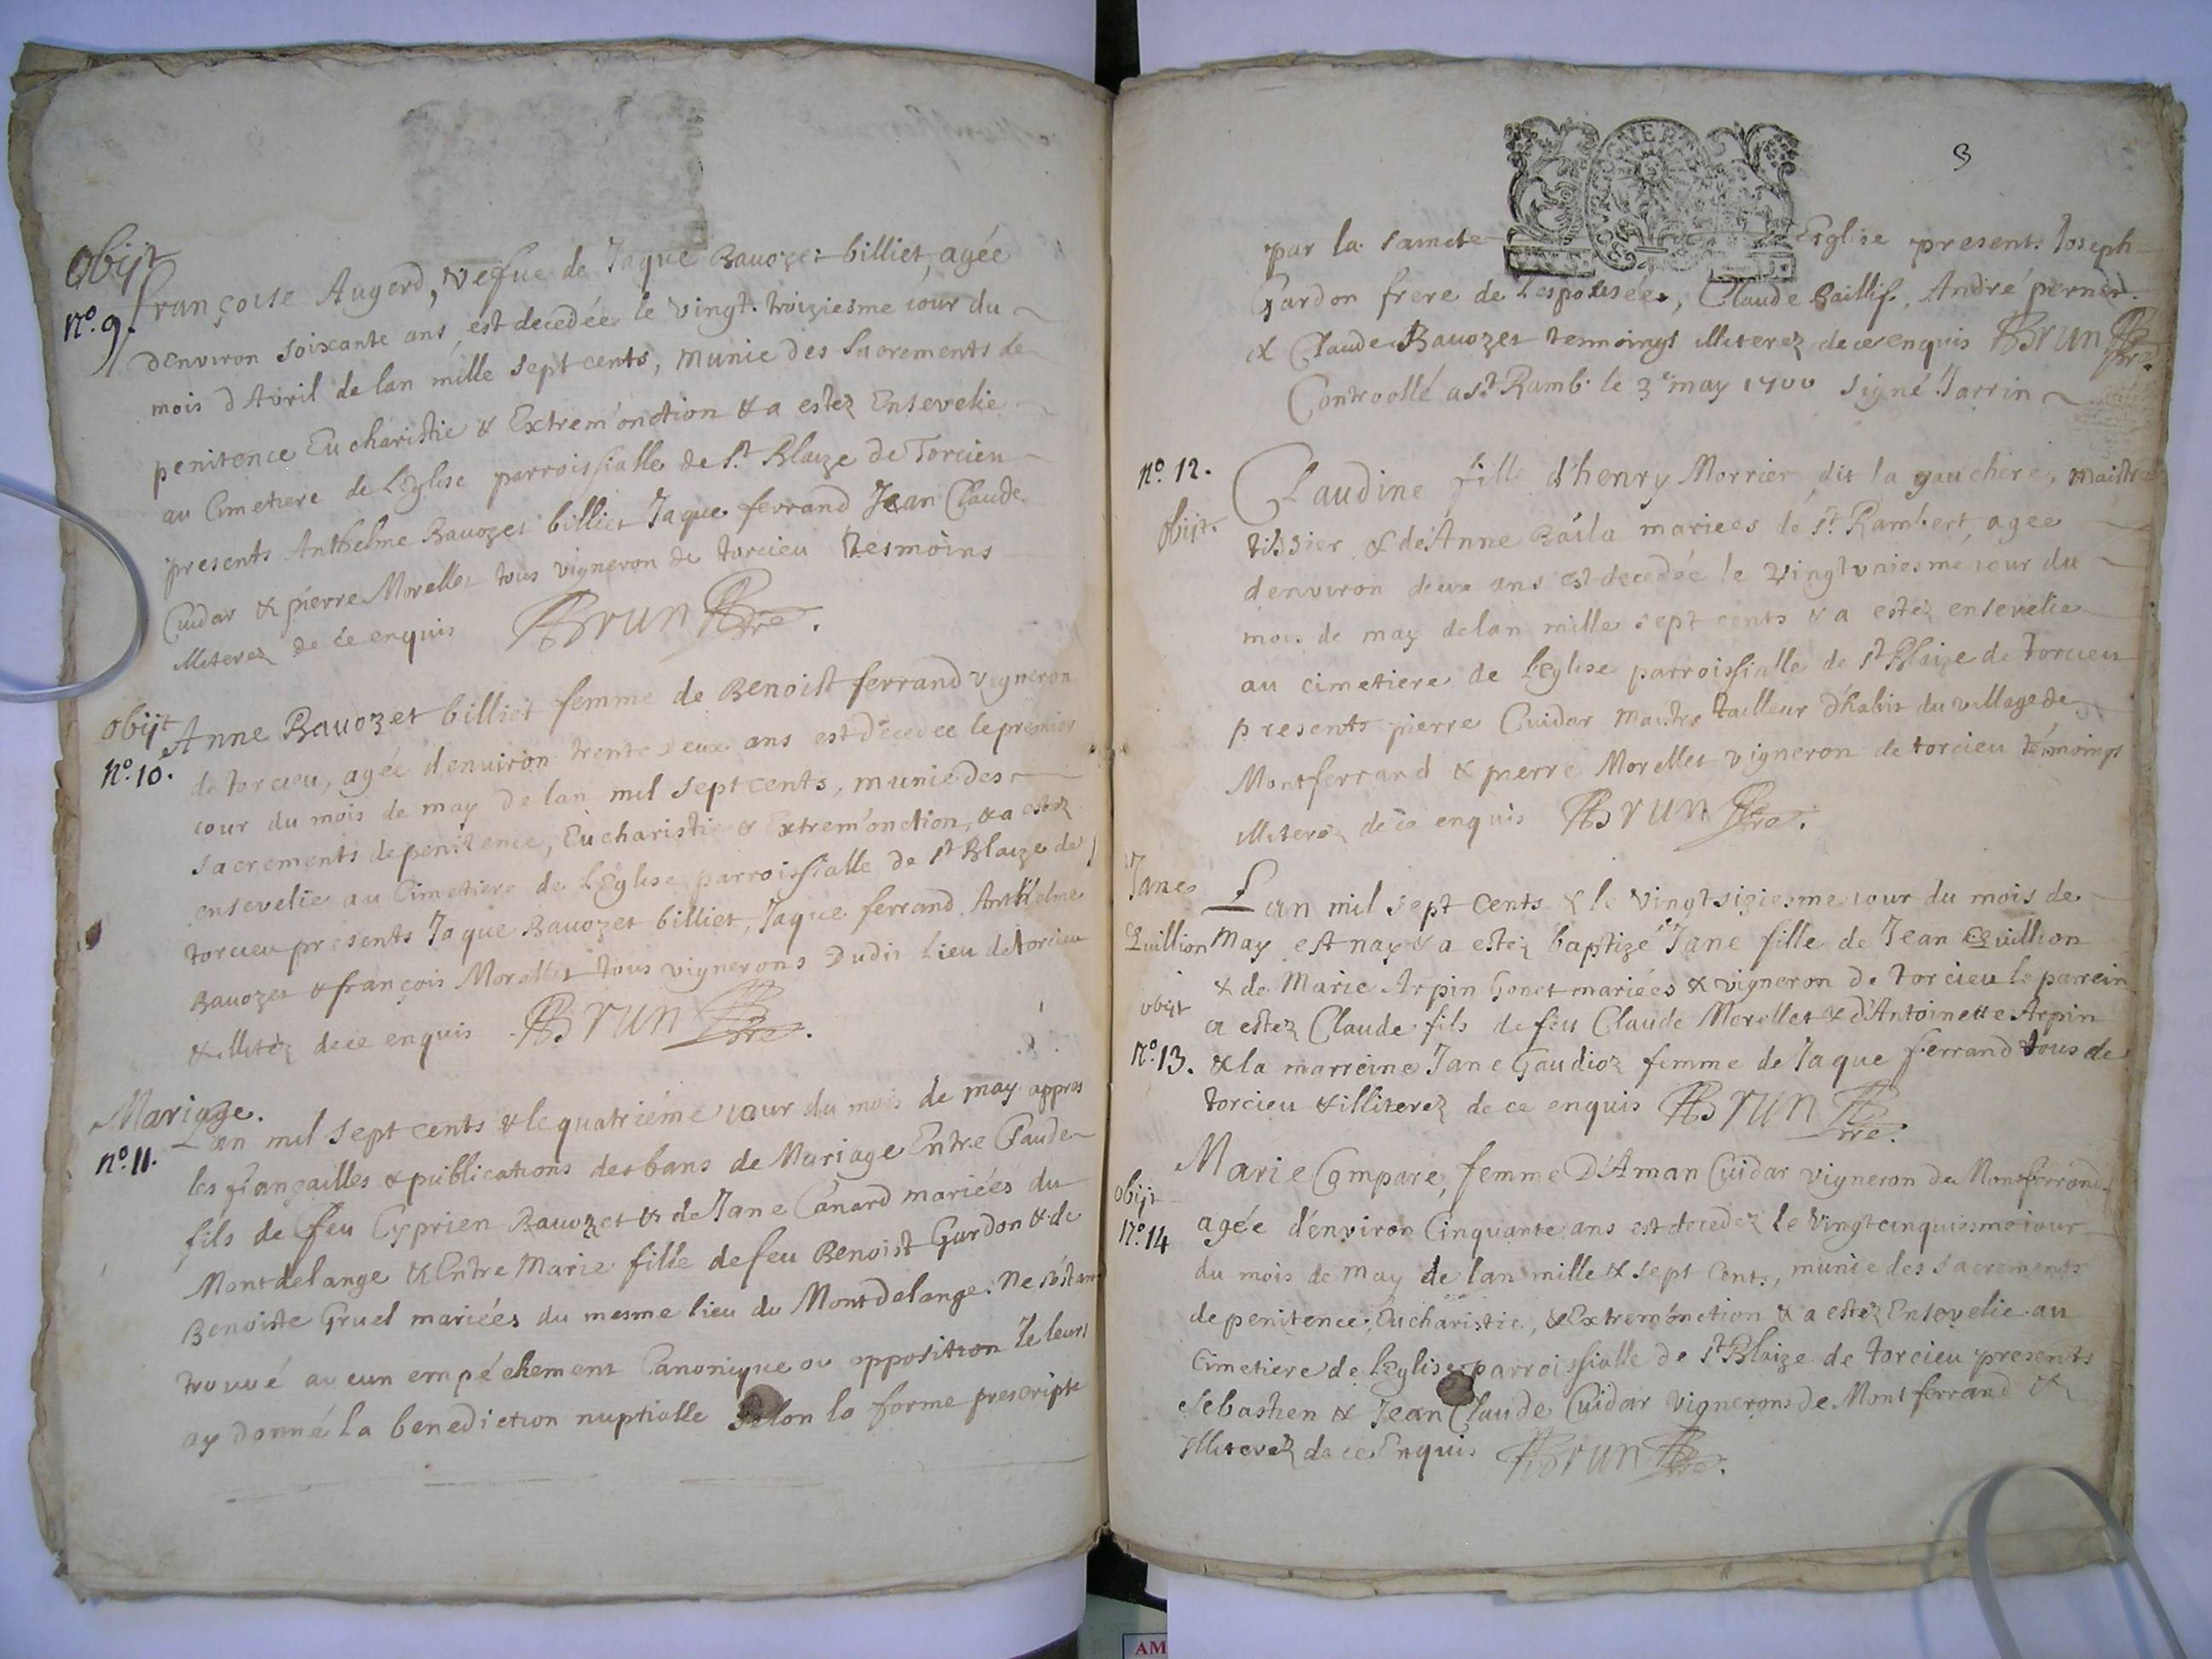 Obijt
n.º 9.
françoise Augerd, vefue de Jaque Bauozet billiet, agée
denviron soixante ans, est decedée le vingt. troiziesme iour du
mois d Avril de lan mille sept cents, munie des Sacrements de
penitence Eucharistie & Extrem'onction & a estez Ensevelie
au Cimetiere de LEglise parroissialle de S.t Blaize de Torcieu
presents Anthelme Bauozet billiet Jaque ferrand Jean Claude
Cuidar & pierre Morellet tous vigneron de torcieu tesmoins
illiterez de ce enquis Brun Pbre.
Obijt
n.º 10.
Anne Bauozet billiet femme de Benoist ferrand vigneron
de torcieu, agée denuiron trente deux ans est decedee le premier
iour du mois de may de lan mil sept cents, munie des
sacrements de penitence, Eucharistie & Extrem'onction, & a estez
ensevelie au Cimetiere de LEglise parroissialle de S.t Blaize de
torcieu presents Jaque Bauozet billiet, Jaque ferrand, Anthelme
Bauozet & françois Morellet tous vignerons dudit Lieu de torcieu
& illitez de ce enquis Brun Pbre.
Mariage.
n.º 11.
Lan mil sept cents & le quatriéme iour du mois de may appres
les fiançailles & publications des bans de Mariage Entre Claude
fils de feu Cyprien Bauozet & de Jane Canard mariées du
Montdelange & Entre Marie fille de feu Benoist Gardon & de
Benoiste Gruel mariées du mesme lieu du Montdelange. Ne sestant
trouvé aucun empéchement Canonique ou opposition Je leurs
ay donné la benediction nuptialle Selon la forme prescripte
3
par la saincte Esglise presents Joseph
Gardon frere de Lespousée, Claude Baillif, André pernin
& Claude Bauozet tesmoings illiterez de ce enquis Brun Pbre.
Controollé a S.t Ramb. le 3e may 1700 signé Jarrin
n.º 12.
Obijt.
Claudine fille d'henry Morrier, dit la gauchere, maistre
tissier & de Anne Baila mariees de S.t Rambert, agee
denviron deux ans est decedée le vingtvniesme iour du
mois de may de lan mille sept cents & a estez ensevelie
au cimetiere de leglise parroissialle de S.t Blaize de torcieu
presents pierre Cuidar maistre tailleur d'habit du village de
Montferrand & pierre Morellet vigneron de torcieu tesmoings
illiterez de ce enquis Brun Pbre.
Jane
Quillion
obijt
n.º 13.
Lan mil sept Cents & le vingtsiziesme iour du mois de
may est nay & a estez baptizé Jane fille de Jean Quillion
& de Marie Arpin Gonet mariées & vigneron de torcieu le parrein
a estez Claude fils de feu Claude Morellet & d'Antoinette Arpin
& la marreine Jane Gaudioz femme de Jaque ferrand tous de
torcieu & illiterez de ce enquis Brun Pbre.
Obijt
n.º 14
Marie Compare, femme D'Aman Cuidar vigneron de Monferrand
agée d'environ Cinquante ans est decedez Le vingtcinquiesme iour
du mois de may de lan mille & sept Cents, munie des sacrements
de penitence, Eucharistie, & Extrem'onction & a estez Ensevelie au
Cimetiere de LEglise parroissialle de S.t Blaize de torcieu presents
Sebastien & Jean Claude Cuidar vignerons de Montferrand &
illiterez de ce Enquis Brun Pbre.
AM